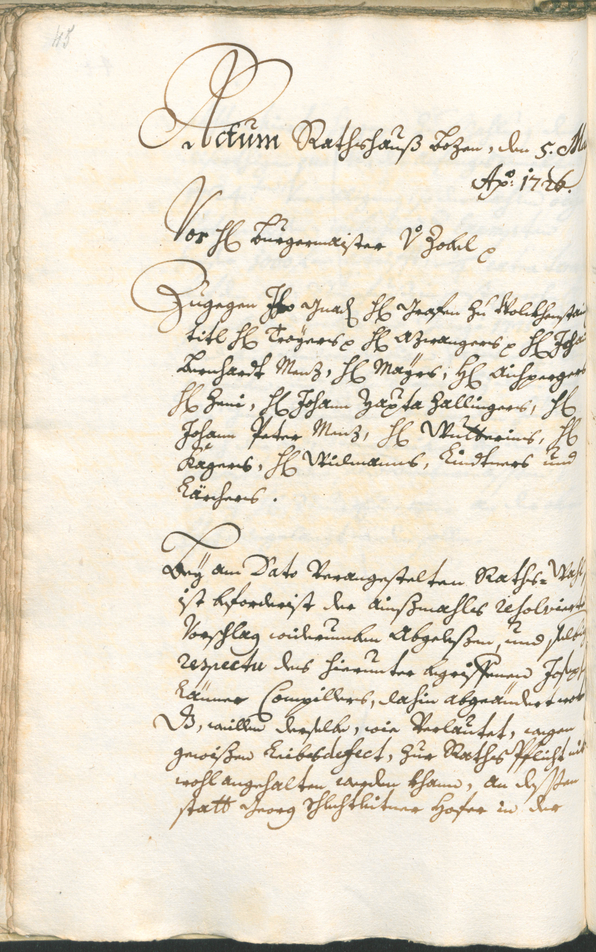 45
Actum Rathshauß Bozen, den 5. M
Aº: 1726.
Vor H Burgermaister Vº Zobel p
Zugegen Ihro Gnad H Grafen zu Wolckhenstain
titl H Troyers p H Azwangers p H Joha
Bernhardt Menz, H Mayrs, H Aichpergers
H Zeni, H Johann Bapta Zallingers, H
Johann Peter Menz, H Gumerius, H
Kagers, H Widmanns, Lindtners und
Lärchers.
Bey am Dato Verangestelten Raths-Wahl
ist beforderist der ainßmahls resolvierte
Vorschlag widerumben Abgelesen, und selbig
respectu des hierunter begriffenen Joseph
Compillers, dahin abgeändert wor
d, willen derselbe, wie Verlautet, wegen
gewißen Leibsdefect, zur Raths Pflicht nit
wohl angehalten werden khann, an dessen
statt Georg Hofer in der